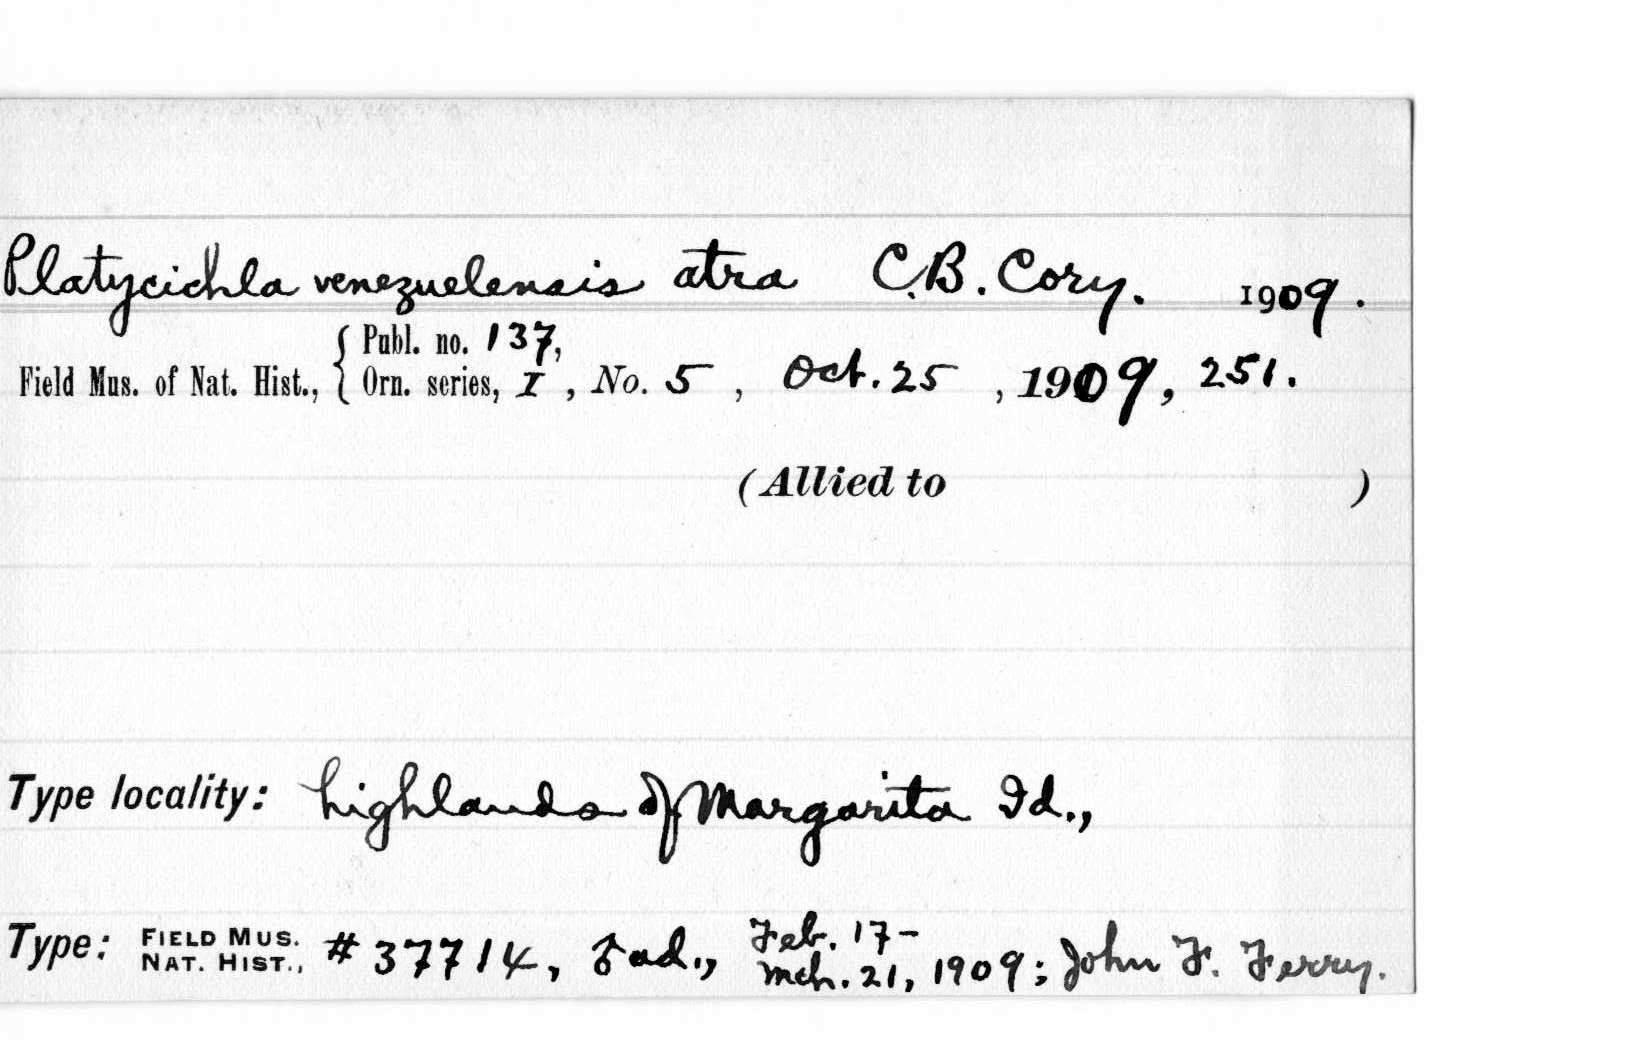 Platycichla venezuelensis atra C.B. Cory. 1909.
Publ. no. 137,
Field Mus. of Nat. Hist., { Orn. series, I, No. 5, Oct. 25, 1909, 251.
(Allied to )
Type locality: highlands of Margarita Id.,
Type: FIELD MUS. NAT. HIST., #37714, ♂ ad., Feb. 17- Mch. 21, 1909; John F. Ferry.